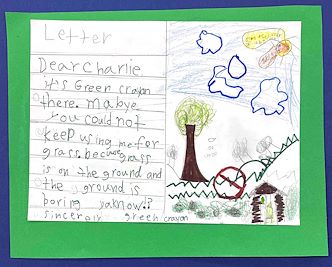 Letter
Dear Charlie
it's Green crayon
there. Mabye
you could not
keep using me for
grass. because grass
is on the ground and
the ground is
boring yaknow!?
sincerly green crayon